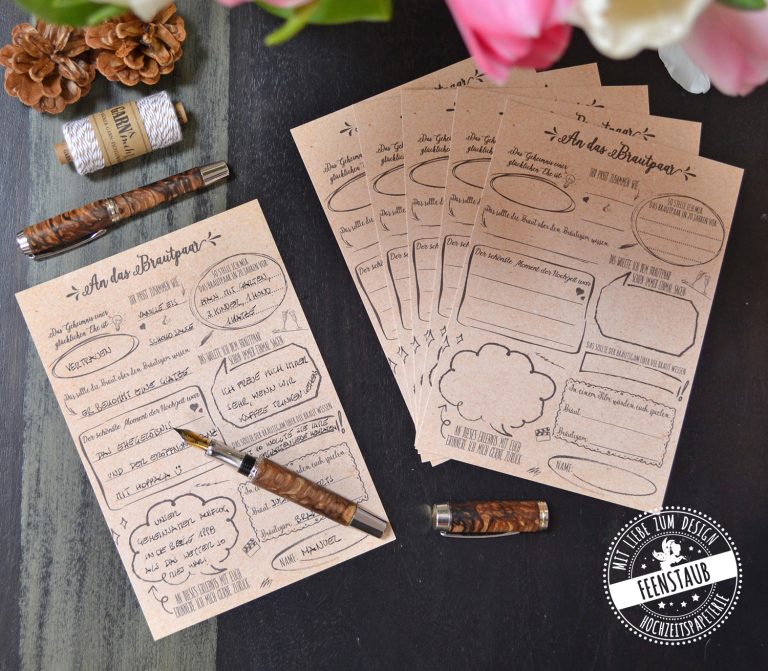 GARN
An das Brautpaar
Das Geheimnis einer
glücklichen Ehe ist
VERTRAUEN
IHR PASST ZUSAMMEN WIE...
VANILLE EIS
&
SCHOKO SAUCE
SO STELLE ICH MIR
DAS BRAUTPAAR IN 20 JAHREN VOR
HAUS MIT GARTEN,
3 KINDER, 1 HUND
1 KATZE
Das sollte die Braut über den Bräutigam wissen
ER BEKOMMT EINE GLATZE
DAS WOLLTE ICH DEM BRAUTPAAR
SCHON IMMER EINMAL SAGEN
ICH FREUE MICH IMMER
SEHR, WENN WIR
KAFFEE TRINKEN
Der schönste Moment der Hochzeit war
UND DER
MIT HOPPALA
DAS SOLLTE DER BRÄUTIGAM ÜBER DIE BRAUT WISSEN
In einem
euch spielen
Braut
Bräutigam
UNSER
GEMEINSAMER AUSFLUG
IN DIE BERGE 1998
ALS DAS WETTER SO
MIES WAR!
AN DIESES ERLEBNIS MIT EUCH
ERINNERE ICH MICH GERNE ZURÜCK
NAME: MANUEL
Das Geheimnis einer
glücklichen
Das sollte die
Der schönste
An das Brautpaar
Das Geheimnis einer
glücklichen Ehe ist
IHR PASST ZUSAMMEN WIE...
&
SO STELLE ICH MIR
DAS BRAUTPAAR IN 20 JAHREN VOR
Das sollte die Braut über den Bräutigam wissen
DAS WOLLTE ICH DEM BRAUTPAAR
SCHON IMMER EINMAL SAGEN
Der schönste Moment der Hochzeit war
DAS SOLLTE DER BRÄUTIGAM ÜBER DIE BRAUT WISSEN
In einem Film würden euch spielen
Braut
Bräutigam
AN DIESES ERLEBNIS MIT EUCH
ERINNERE ICH MICH GERNE ZURÜCK
NAME:
MIT LIEBE ZUM DESIGN
FEENSTAUB
HOCHZEITSPAPETERIE